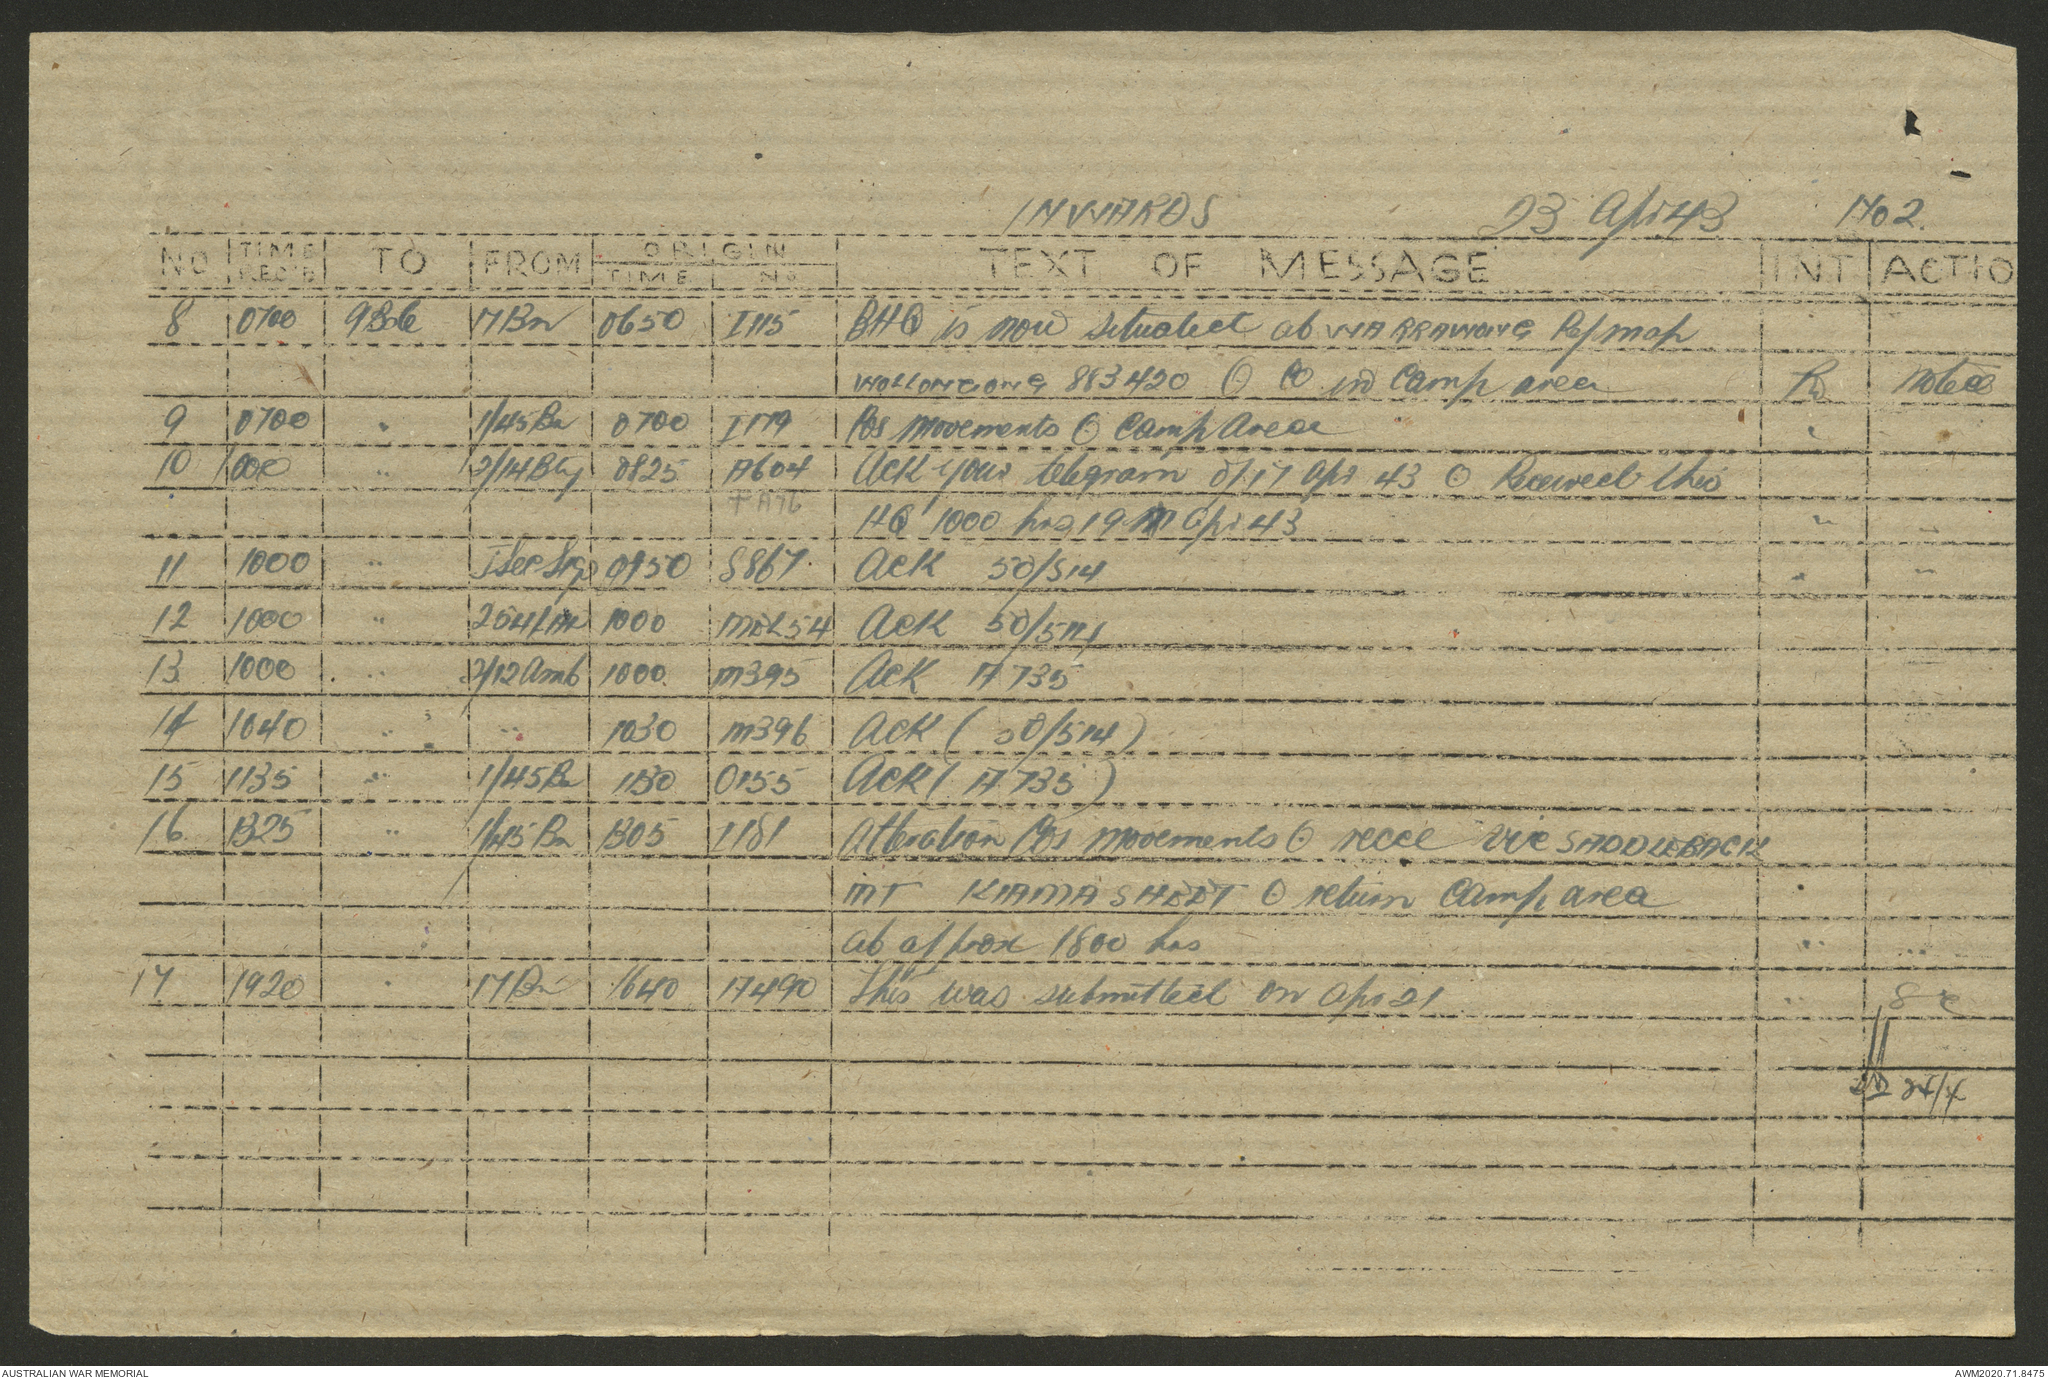 INWARDS 23 Apr 43 No 2.
NO TIME REC'D TO FROM ORIGIN TIME NO TEXT OF MESSAGE INT ACTIO
8 0700 9Bde 17 Bn 0650 I115 BHQ is now situated at WARRAWONG Ref map
WOLLONGONG 883420 ⊙ CO in Camp area Noted
9 0700 " 1/45 Bn 0700 I179 COs movements ⊙ Camp Area "
10 1000 " 2/14 Bty 0825 A604 Ack your telegram of 17 Apr 43 ⊙ Received this
+ A76 HQ 1000 hrs 19 Apr 43 " "
11 1000 " J Sec Sigs 0950 S867 Ack 50/514 " "
12 1000 " 1000 Ack 50/514
13 1000 " 2/12 Amb 1000 M395 Ack A735
14 1040 " " 1030 M396 Ack (50/514)
15 1135 " 1/45 Bn 1130 O155 Ack (A735)
16 1325 " 1/45 Bn 1305 I181 Alteration COs movements ⊙ recce vic SADDLEBACK
MT KIAMA SHEET ⊙ return Camp area "
at approx 1800 hrs " "
17 1920 " 17 Bn 1640 A490 This was submitted on Apr 21 " SC
24/4
AUSTRALIAN WAR MEMORIAL AWM2020.71.8475